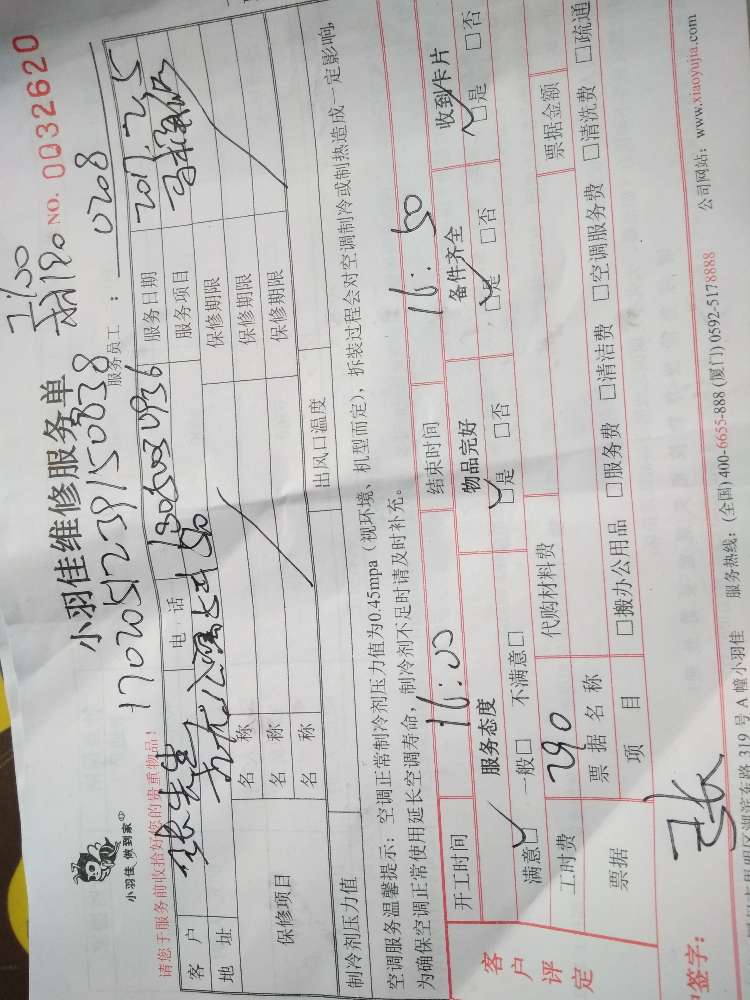 小羽佳 做到家
小羽佳维修服务单
NO. 0032620
170205123915 0838
服务员工: 0208
请您于服务前收拾好您的贵重物品!
客 户 张先生 电 话 服务日期 2017.2.5
地 址 服务项目
保修项目
名 称 保修期限
名 称 保修期限
名 称 保修期限
制冷剂压力值 出风口温度
空调服务温馨提示: 空调正常制冷剂压力值为0.45mpa (视环境、机型而定), 拆装过程会对空调制冷或制热造成一定影响,
为确保空调正常使用延长空调寿命, 制冷剂不足时请及时补充。
开工时间 16:00 结束时间 16:50
客户评定
服务态度 物品完好 备件齐全 收到卡片
满意□ 一般□ 不满意□ □是 □否 □是 □否 □是 □否
工时费 290 代购材料费 票据金额
票据 票据名称
项 目 □搬办公用品 □服务费 □清洁费 □空调服务费 □清洗费 □疏通
户签字: 张
湖滨东路 319 号 A 幢小羽佳 服务热线: (全国) 400-6655-888 (厦门) 0592-5178888 公司网站: www.xiaoyujia.com